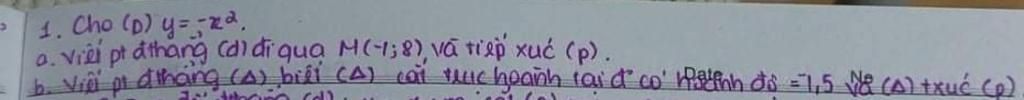 1. Cho (D) y = -x².
a. Viết pt đthẳng (d) đi qua M(-1;8) và tiếp xúc (p).
b. Viết pt đthẳng (Δ) biết (Δ) cắt trục hoành tại đ' có hoành độ = 1,5 Và (Δ) txuć (p)